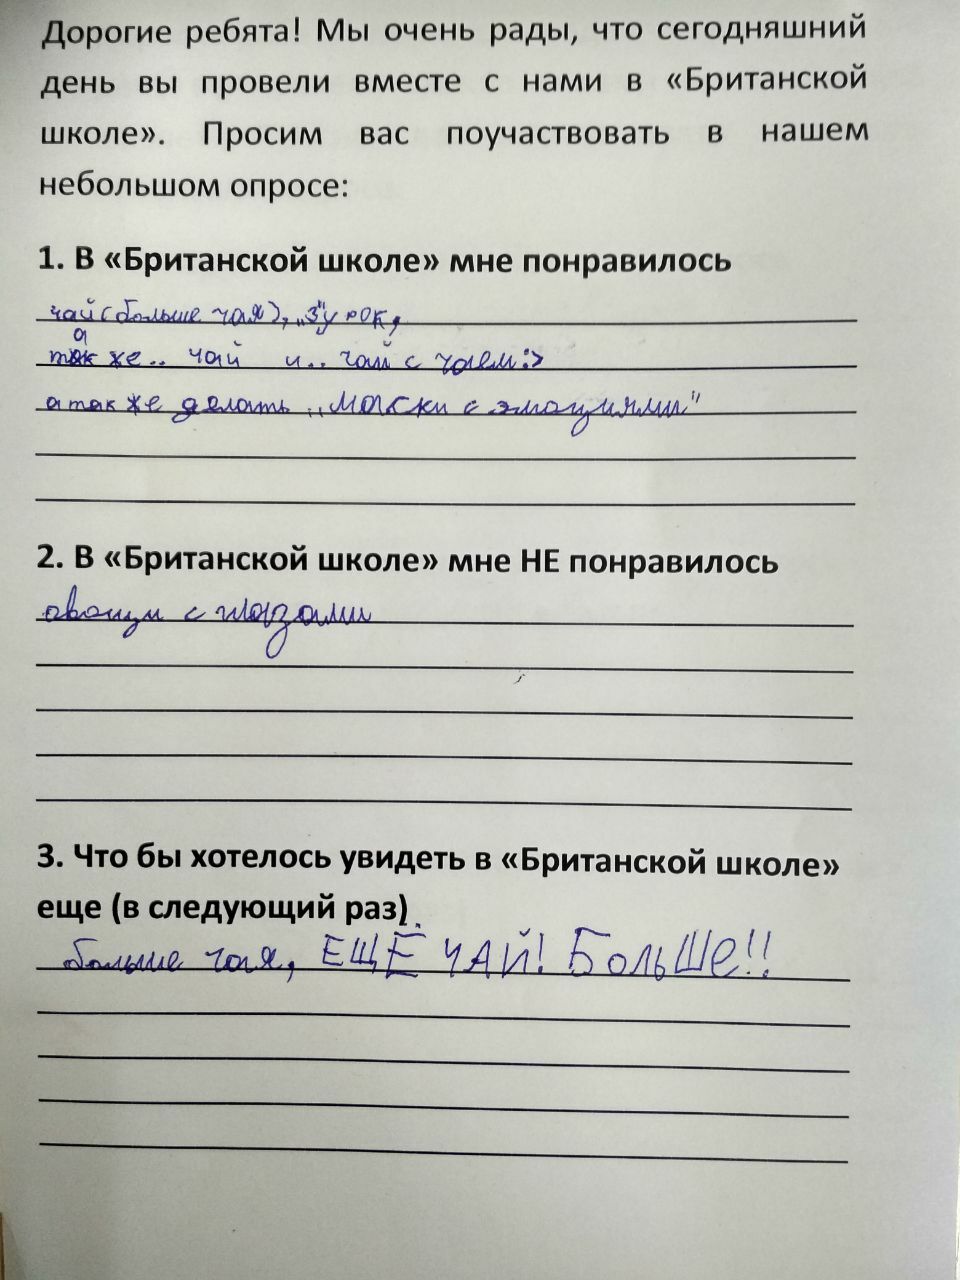 Дорогие ребята! Мы очень рады, что сегодняшний
день вы провели вместе с нами в «Британской
школе». Просим вас поучаствовать в нашем
небольшом опросе:
1. В «Британской школе» мне понравилось
чай (больше чая), „3" урок,
а также.. чай и.. чай с чаем:>
а так же делать „маски с эмоциями"
2. В «Британской школе» мне НЕ понравилось
овощи с глазами
3. Что бы хотелось увидеть в «Британской школе»
еще (в следующий раз)
больше чая, ЕЩЁ ЧАЙ! БОЛЬШЕ!!